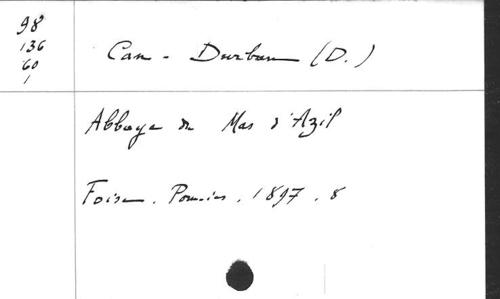 98
136
60
1
Cau-Durban (D.)
Abbaye du Mas d'Azil
Foix. Pomiès, 1897. 8